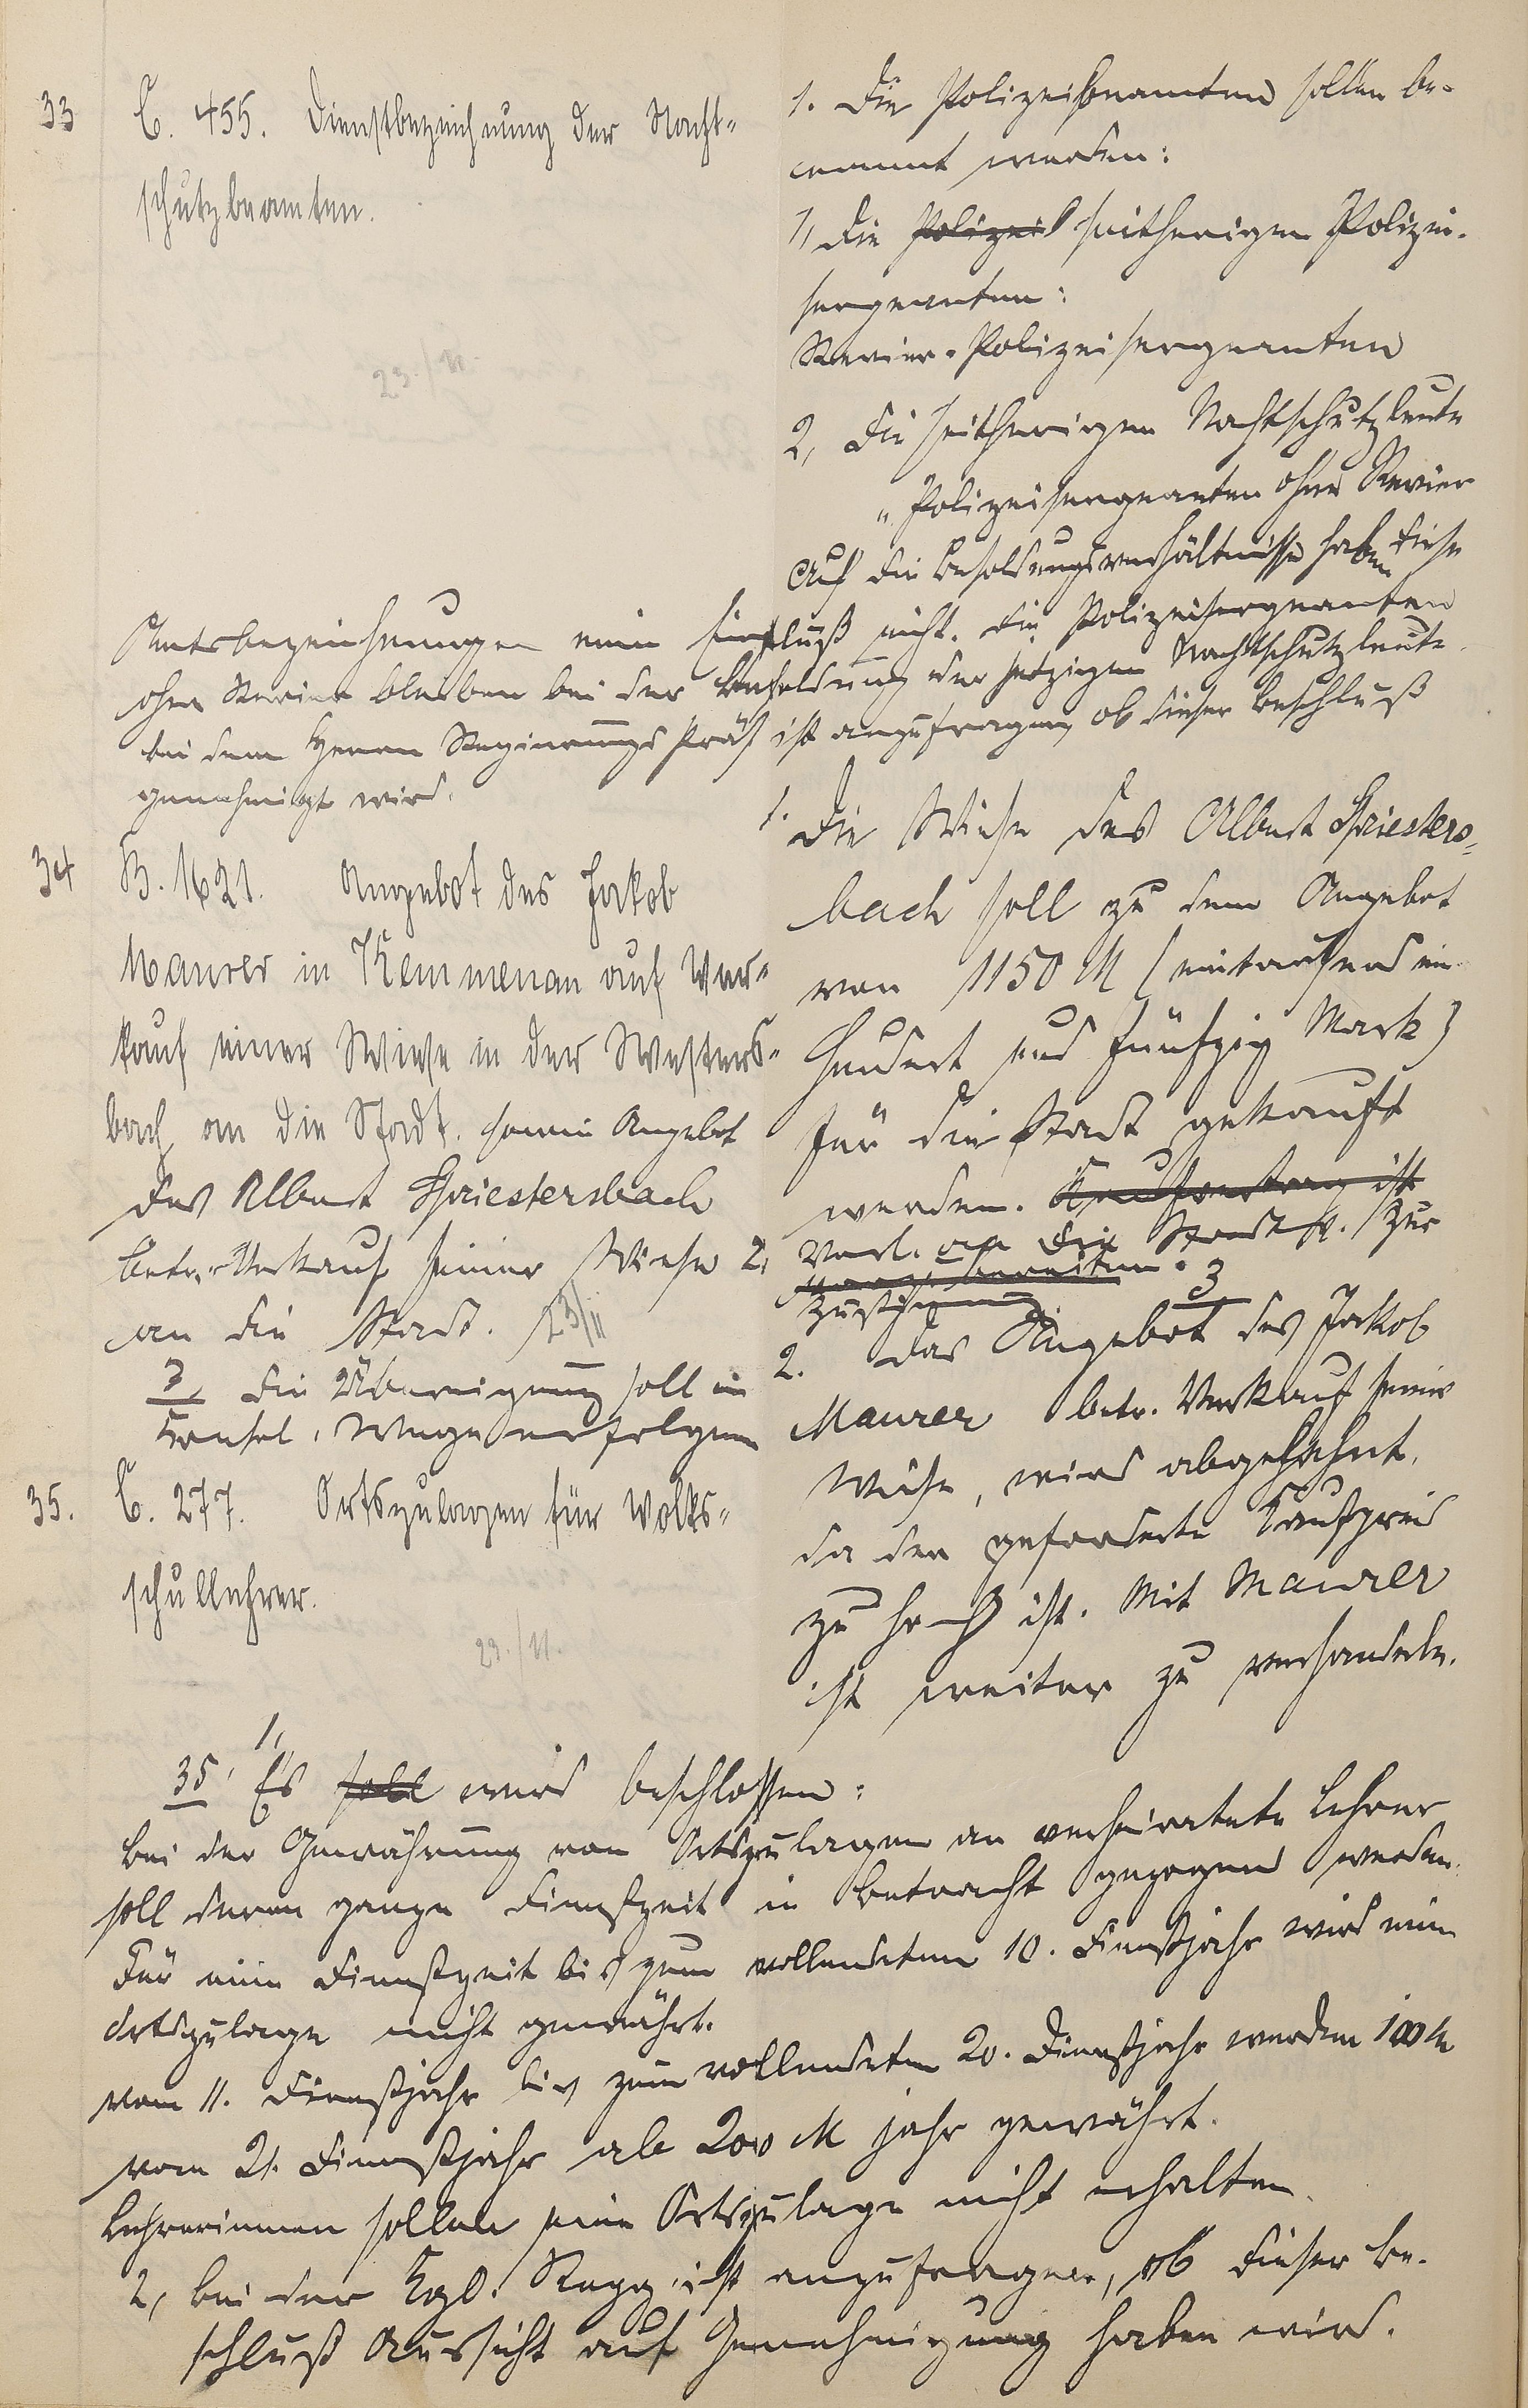 33
C. 455. Dienstbezeichnung der Nacht-
schutzbeamten.
23./11.
1. Die Polizeibeamten sollen be-
nannt werden:
1, die Polizeis seitherigen Polizei-
sergeanten:
Revier-Polizeisergeanten
2, die seitherigen Nachtschutzleute
"Polizeisergeanten ohne Revier
Auf die Besoldungsverhältnisse haben diese
Amtsbezeichnungen einen Einfluß nicht. Die Polizeisergeanten
ohne Revier bleiben bei der Besoldung der jetzigen Nachtschutzleute.
bei dem Herrn Regierungs Präs ist anzufragen, ob dieser Beschluß
genehmigt wird.
34
B. 1621. Angebot des Jakob
Maurer in Kemmenau auf Ver-
kauf einer Wiese in der Westers-
bach an die Stadt. sowie Angebot
des Albert Spriestersbach
betr. Verkauf seiner Wiese
an die Stadt. 23/11
3, Die Übereignung soll im
Konsol. Wege erfolgen
1. Die Wiese des Albert Spriesters-
bach soll zu dem Angebot
von 1150 M (eintausend ein
hundert und fünfzig Mark)
für die Stadt gekauft
werden. Kaufvertrag ist
2, Vorl. an die Stadtv. zur
Zustimmung
3
2. Das Angebot des Jakob
Maurer betr. Verkauf seiner
Wiese, wird abgelehnt,
da der geforderte Kaufpreis
zu hoch ist. Mit Maurer
ist weiter zu verhandeln.
35.
C. 277. Ortszulagen für Volks-
schullehrer.
23./11.
35, 1, Es soll wird beschlossen:
Bei der Gewährung von Ortszulagen an verheiratete Lehrer
soll deren ganze Dienstzeit in Betracht gezogen werden.
Für eine Dienstzeit bis zum vollendeten 10. Dienstjahr wird eine
Ortszulage nicht gewährt.
vom 11. Dienstjahr bis zum vollendeten 20. Dienstjahr werden 100 M
vom 21. Dienstjahr ab 200 M jahr gewährt.
Lehrerinnen sollen eine Ortszulage nicht erhalten.
2, bei der Kgl. Regg. ist anzufragen, ob dieser Be-
schluß Aussicht auf Genehmigung haben wird.